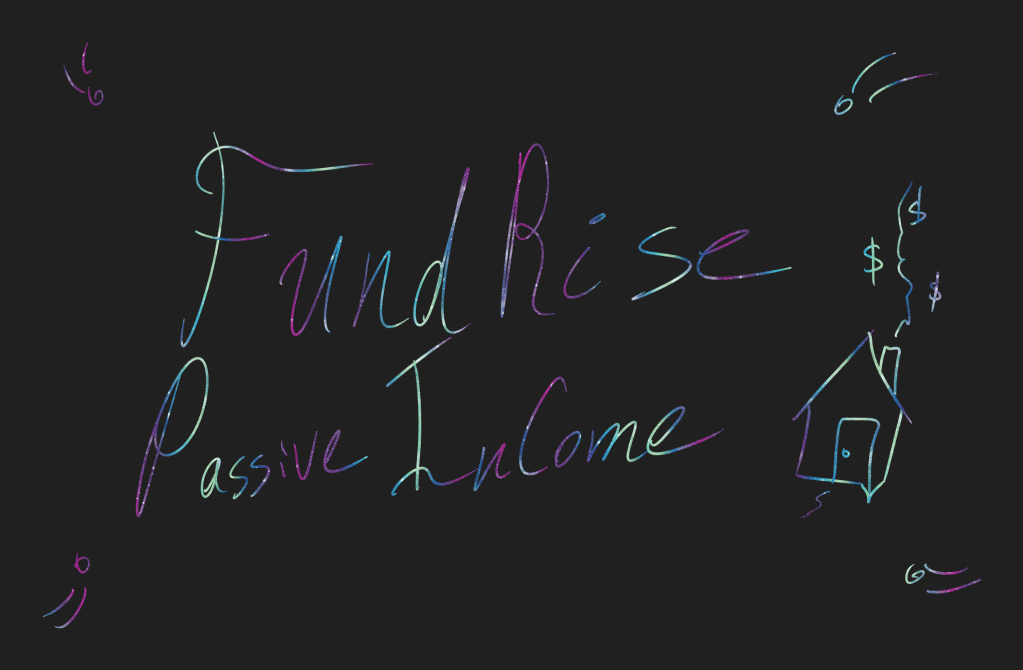 FundRise
Passive InCome
$
$
$